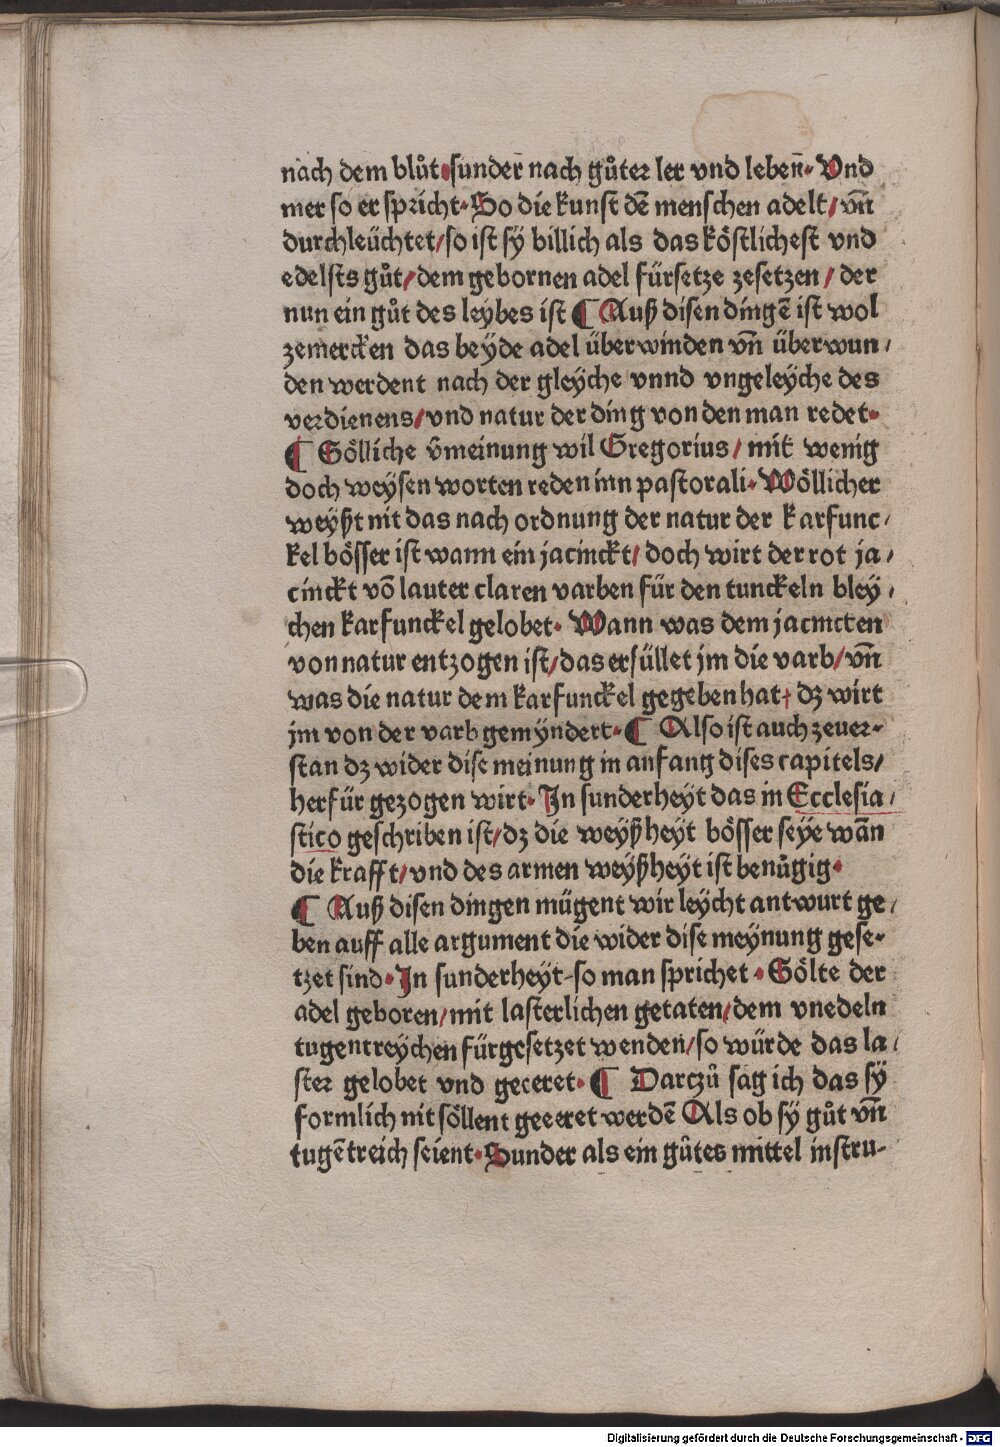 nach dem blůt·sundern̄ nach gůter ler vnd lebeñ· Vnd
mer so er spricht·So die kunst dē menschen adelt/vn̄
durchleüchtet/so ist sÿ billich als das köstlichest vnd
edelsts gůt/dem gebornen adel fürsetze zesetzen/der
nun ein gůt des leybes ist ¶ Auß disen dingē ist wol
zemercken das beÿde adel überwinden vn̄ überwun/
den werdent nach der gleÿche vnnd vngeleÿche des
verdienens/vnd natur der ding von den man redet·
¶ Sölliche v̄meinung wil Gregorius/mit wenig
doch weÿsen worten reden inn pastorali·Wöllicher
weÿßt nit das nach ordnung der natur der karfunc/
kel bösser ist wann ein jacinckt/doch wirt der rot ja/
cinckt vō lauter claren varben für den tunckeln bleÿ/
chen karfunckel gelobet· Wann was dem jacincten
von natur entzogen ist/das erfüllet jm die varb/vn̄
was die natur dem karfunckel gegeben hat/dz wirt
jm von der varb gemÿndert·¶ Also ist auch zeuer-
stan dz wider dise meinung in anfang dises capitels/
herfür gezogen wirt·In sunderheÿt das in Ecclesia/
stico geschriben ist/dz die weÿßheÿt bösser seÿe wān
die krafft/vnd des armen weÿßheÿt ist benůgig·
¶ Auß disen dingen mügent wir leÿcht antwurt ge/
ben auff alle argument die wider dise meÿnung gese-
tzet sind·In sunderheÿt-so man sprichet·Sölte der
adel geboren/mit lasterlichen getaten/dem vnedeln
tugentreÿchen fürgesetzet wenden/so würde das la/
ster gelobet vnd geeeret·¶ Darczů sag ich das sÿ
formlich nit söllent geeeret werdē Als ob sÿ gůt vn̄
tugētreich seient·Sunder als ein gůtes mittel instru-
Digitalisierung gefördert durch die Deutsche Forschungsgemeinschaft - DFG